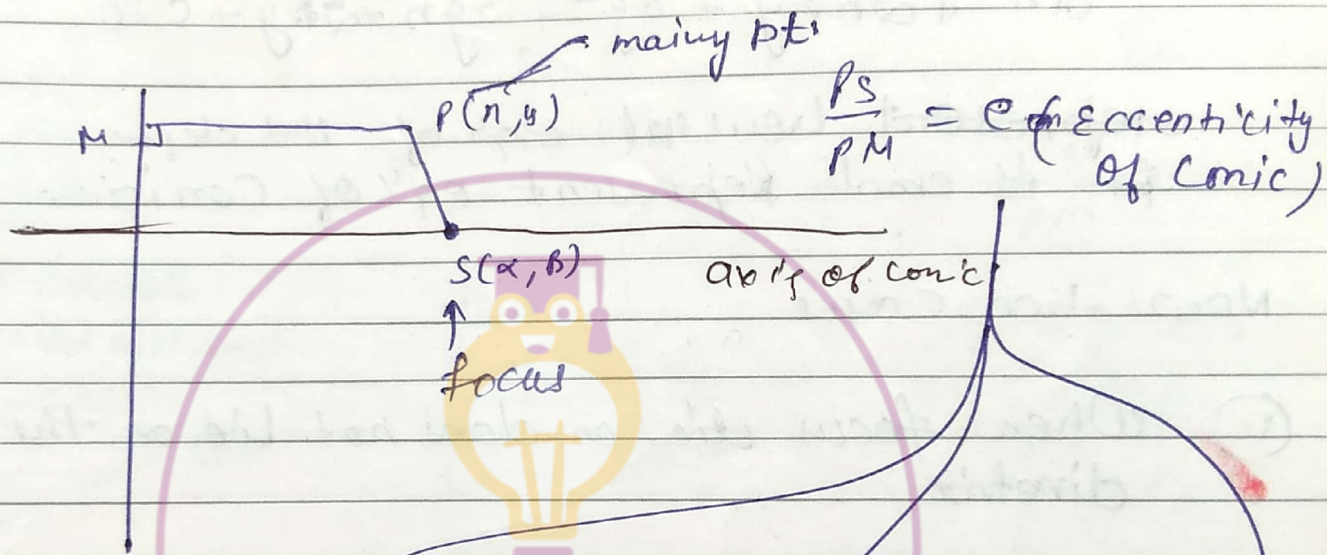 mainy pts
P(x,y)
M
PS/PM = e (Eccenticity
of Conic)
S(α, β)
axis of conic
↑
focus